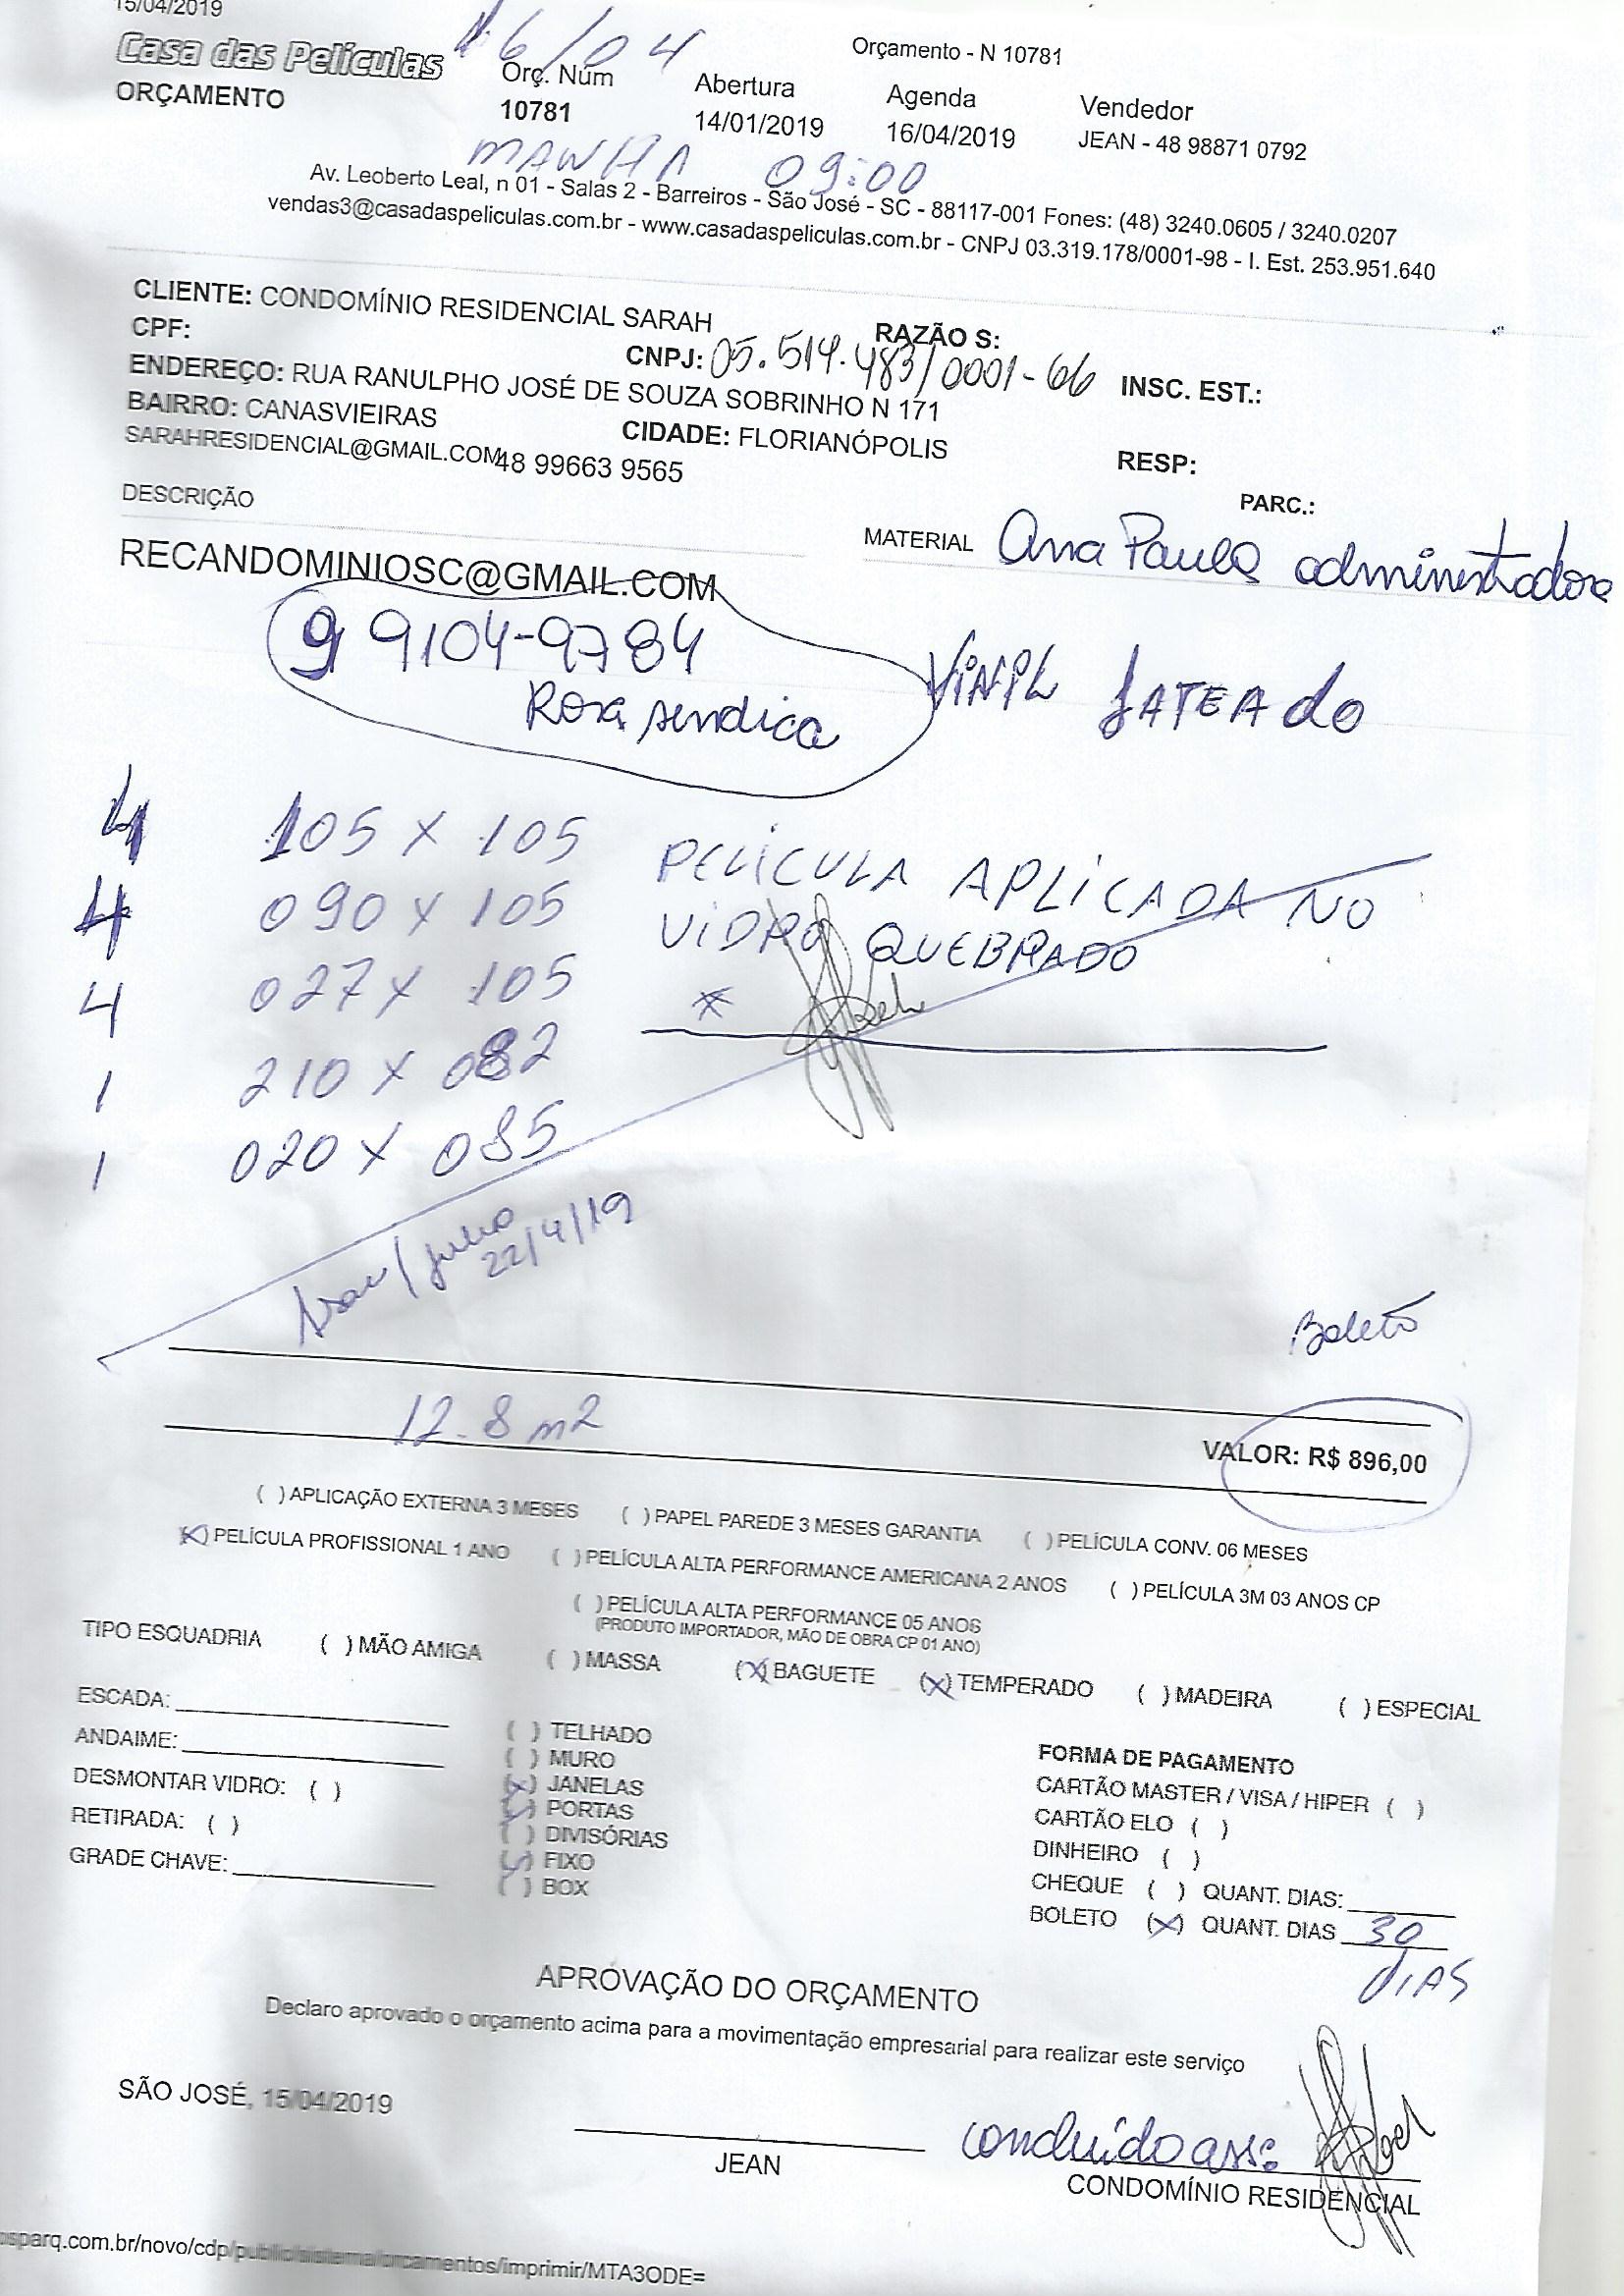 15/04/2019
Orçamento - N 10781
16/04
Casa das Películas
ORÇAMENTO
Orç. Núm
10781
Abertura
14/01/2019
Agenda
16/04/2019
Vendedor
JEAN - 48 98871 0792
MANHA 09:00
Av. Leoberto Leal, n 01 - Salas 2 - Barreiros - São José - SC - 88117-001 Fones: (48) 3240.0605 / 3240.0207
vendas3@casadaspeliculas.com.br - www.casadaspeliculas.com.br - CNPJ 03.319.178/0001-98 - I. Est. 253.951.640
CLIENTE: CONDOMÍNIO RESIDENCIAL SARAH RAZÃO S:
CPF: CNPJ: 05.514.483/0001-66 INSC. EST.:
ENDEREÇO: RUA RANULPHO JOSÉ DE SOUZA SOBRINHO N 171
BAIRRO: CANASVIEIRAS CIDADE: FLORIANÓPOLIS RESP:
SARAHRESIDENCIAL@GMAIL.COM 48 99663 9565 PARC.:
DESCRIÇÃO MATERIAL Ana Paula administradora
RECANDOMINIOSC@GMAIL.COM
9 9104-9784
Rosa sindica
VINIL JATEADO
4 105 X 105
4 090 X 105
4 027 X 105
1 210 X 082
1 020 X 085
PELICULA APLICADA NO
VIDRO QUEBRADO
*
/ Julho
22/4/19
Boleto
12.8 m2
VALOR: R$ 896,00
( ) APLICAÇÃO EXTERNA 3 MESES ( ) PAPEL PAREDE 3 MESES GARANTIA ( ) PELÍCULA CONV. 06 MESES
(X) PELÍCULA PROFISSIONAL 1 ANO ( ) PELÍCULA ALTA PERFORMANCE AMERICANA 2 ANOS ( ) PELÍCULA 3M 03 ANOS CP
( ) PELÍCULA ALTA PERFORMANCE 05 ANOS
(PRODUTO IMPORTADOR, MÃO DE OBRA CP 01 ANO)
TIPO ESQUADRIA ( ) MÃO AMIGA ( ) MASSA (X) BAGUETE (X) TEMPERADO ( ) MADEIRA ( ) ESPECIAL
ESCADA:
ANDAIME:
DESMONTAR VIDRO: ( )
RETIRADA: ( )
GRADE CHAVE:
( ) TELHADO
( ) MURO
(X) JANELAS
(X) PORTAS
( ) DIVISÓRIAS
(X) FIXO
( ) BOX
FORMA DE PAGAMENTO
CARTÃO MASTER / VISA / HIPER ( )
CARTÃO ELO ( )
DINHEIRO ( )
CHEQUE ( ) QUANT. DIAS:
BOLETO (X) QUANT. DIAS 30
DIAS
APROVAÇÃO DO ORÇAMENTO
Declaro aprovado o orçamento acima para a movimentação empresarial para realizar este serviço
SÃO JOSÉ, 15/04/2019
concluído ass:
JEAN
CONDOMÍNIO RESIDENCIAL
osparq.com.br/novo/cdp/public/sistema/orcamentos/imprimir/MTA3ODE=